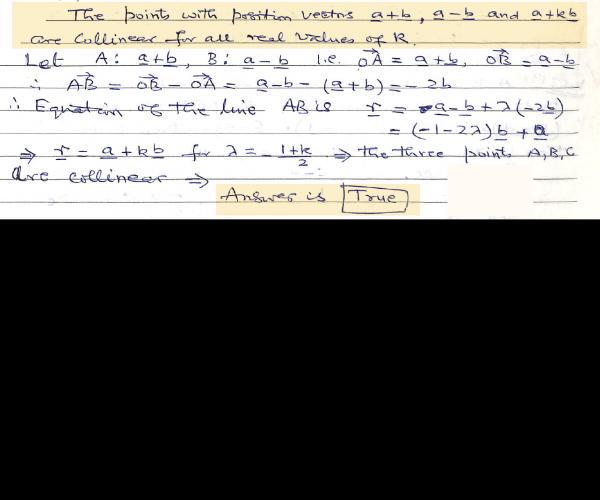 The points with position vectors a+b, a-b and a+kb
are collinear for all real values of k.
Let A: a+b, B: a-b i.e. OA = a+b, OB = a-b
∴ AB = OB - OA = a-b-(a+b) = -2b
∴ Equation of the line AB is r = a-b+λ(-2b)
= (-1-2λ)b + a
⇒ r = a+kb for λ = -1+k/2 ⇒ the three points A,B,C
are collinear ⇒
Answer is True